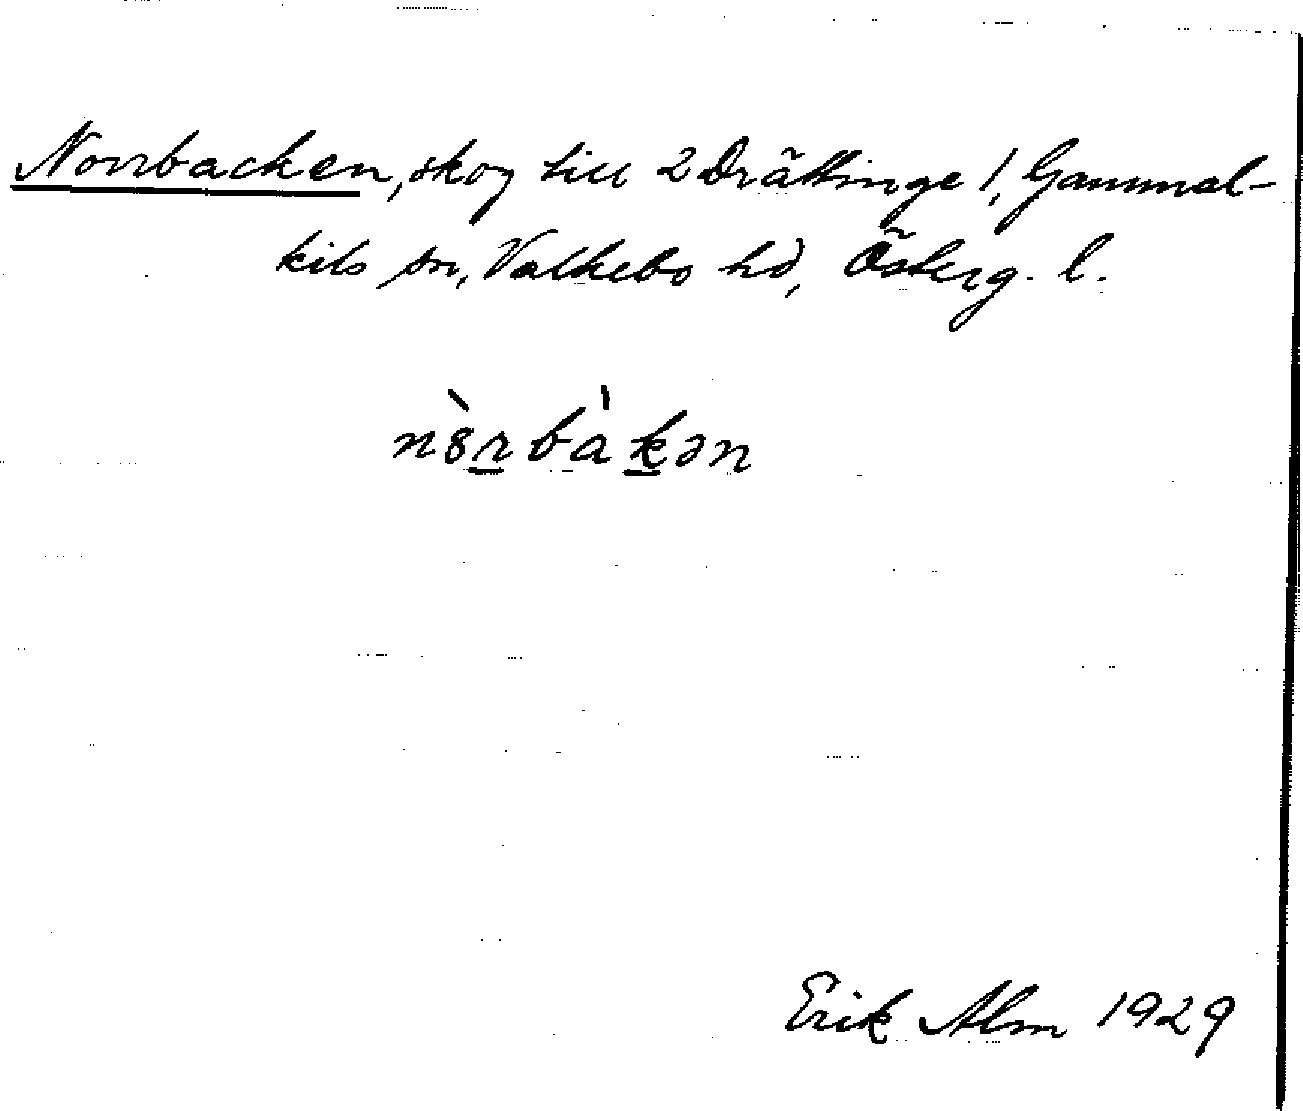 Norrbacken, skog till 2 Drättinge 1, Gammal-
kils sn, Valkebo hd, Österg. l.
n8̀r̲bàk̲ən
Erik Alm 1929